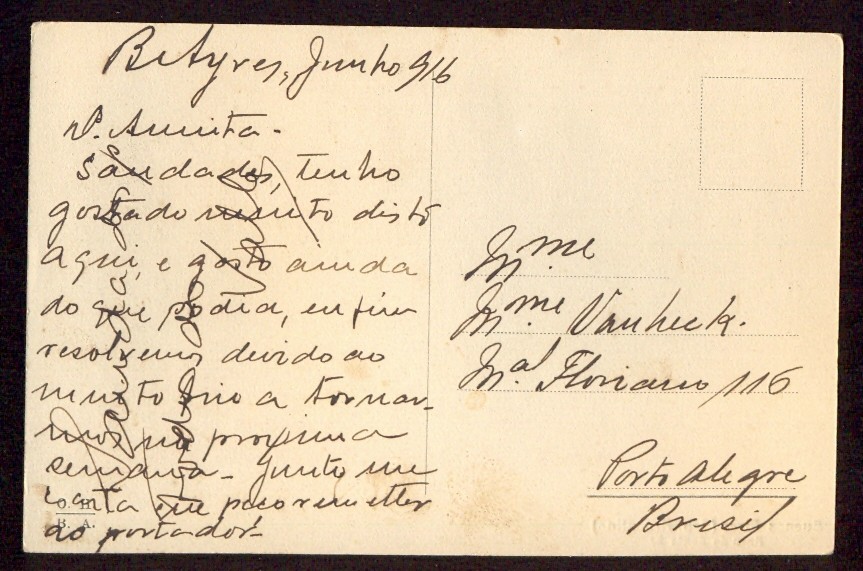 B Ayres, Junho 916
D. Annita -
Saudades, tenho
gostado muito disto
aqui, e gosto ainda
do que podia, enfim
resolvemos devido ao
muito frio a tornar-
mos na proxima
semana - Junto uma
carta que peco remetter
ao portador -
O. M
B. A.
Mme
Mme Vanheck.
Mal Floriano 116
Porto Alegre
Bresil